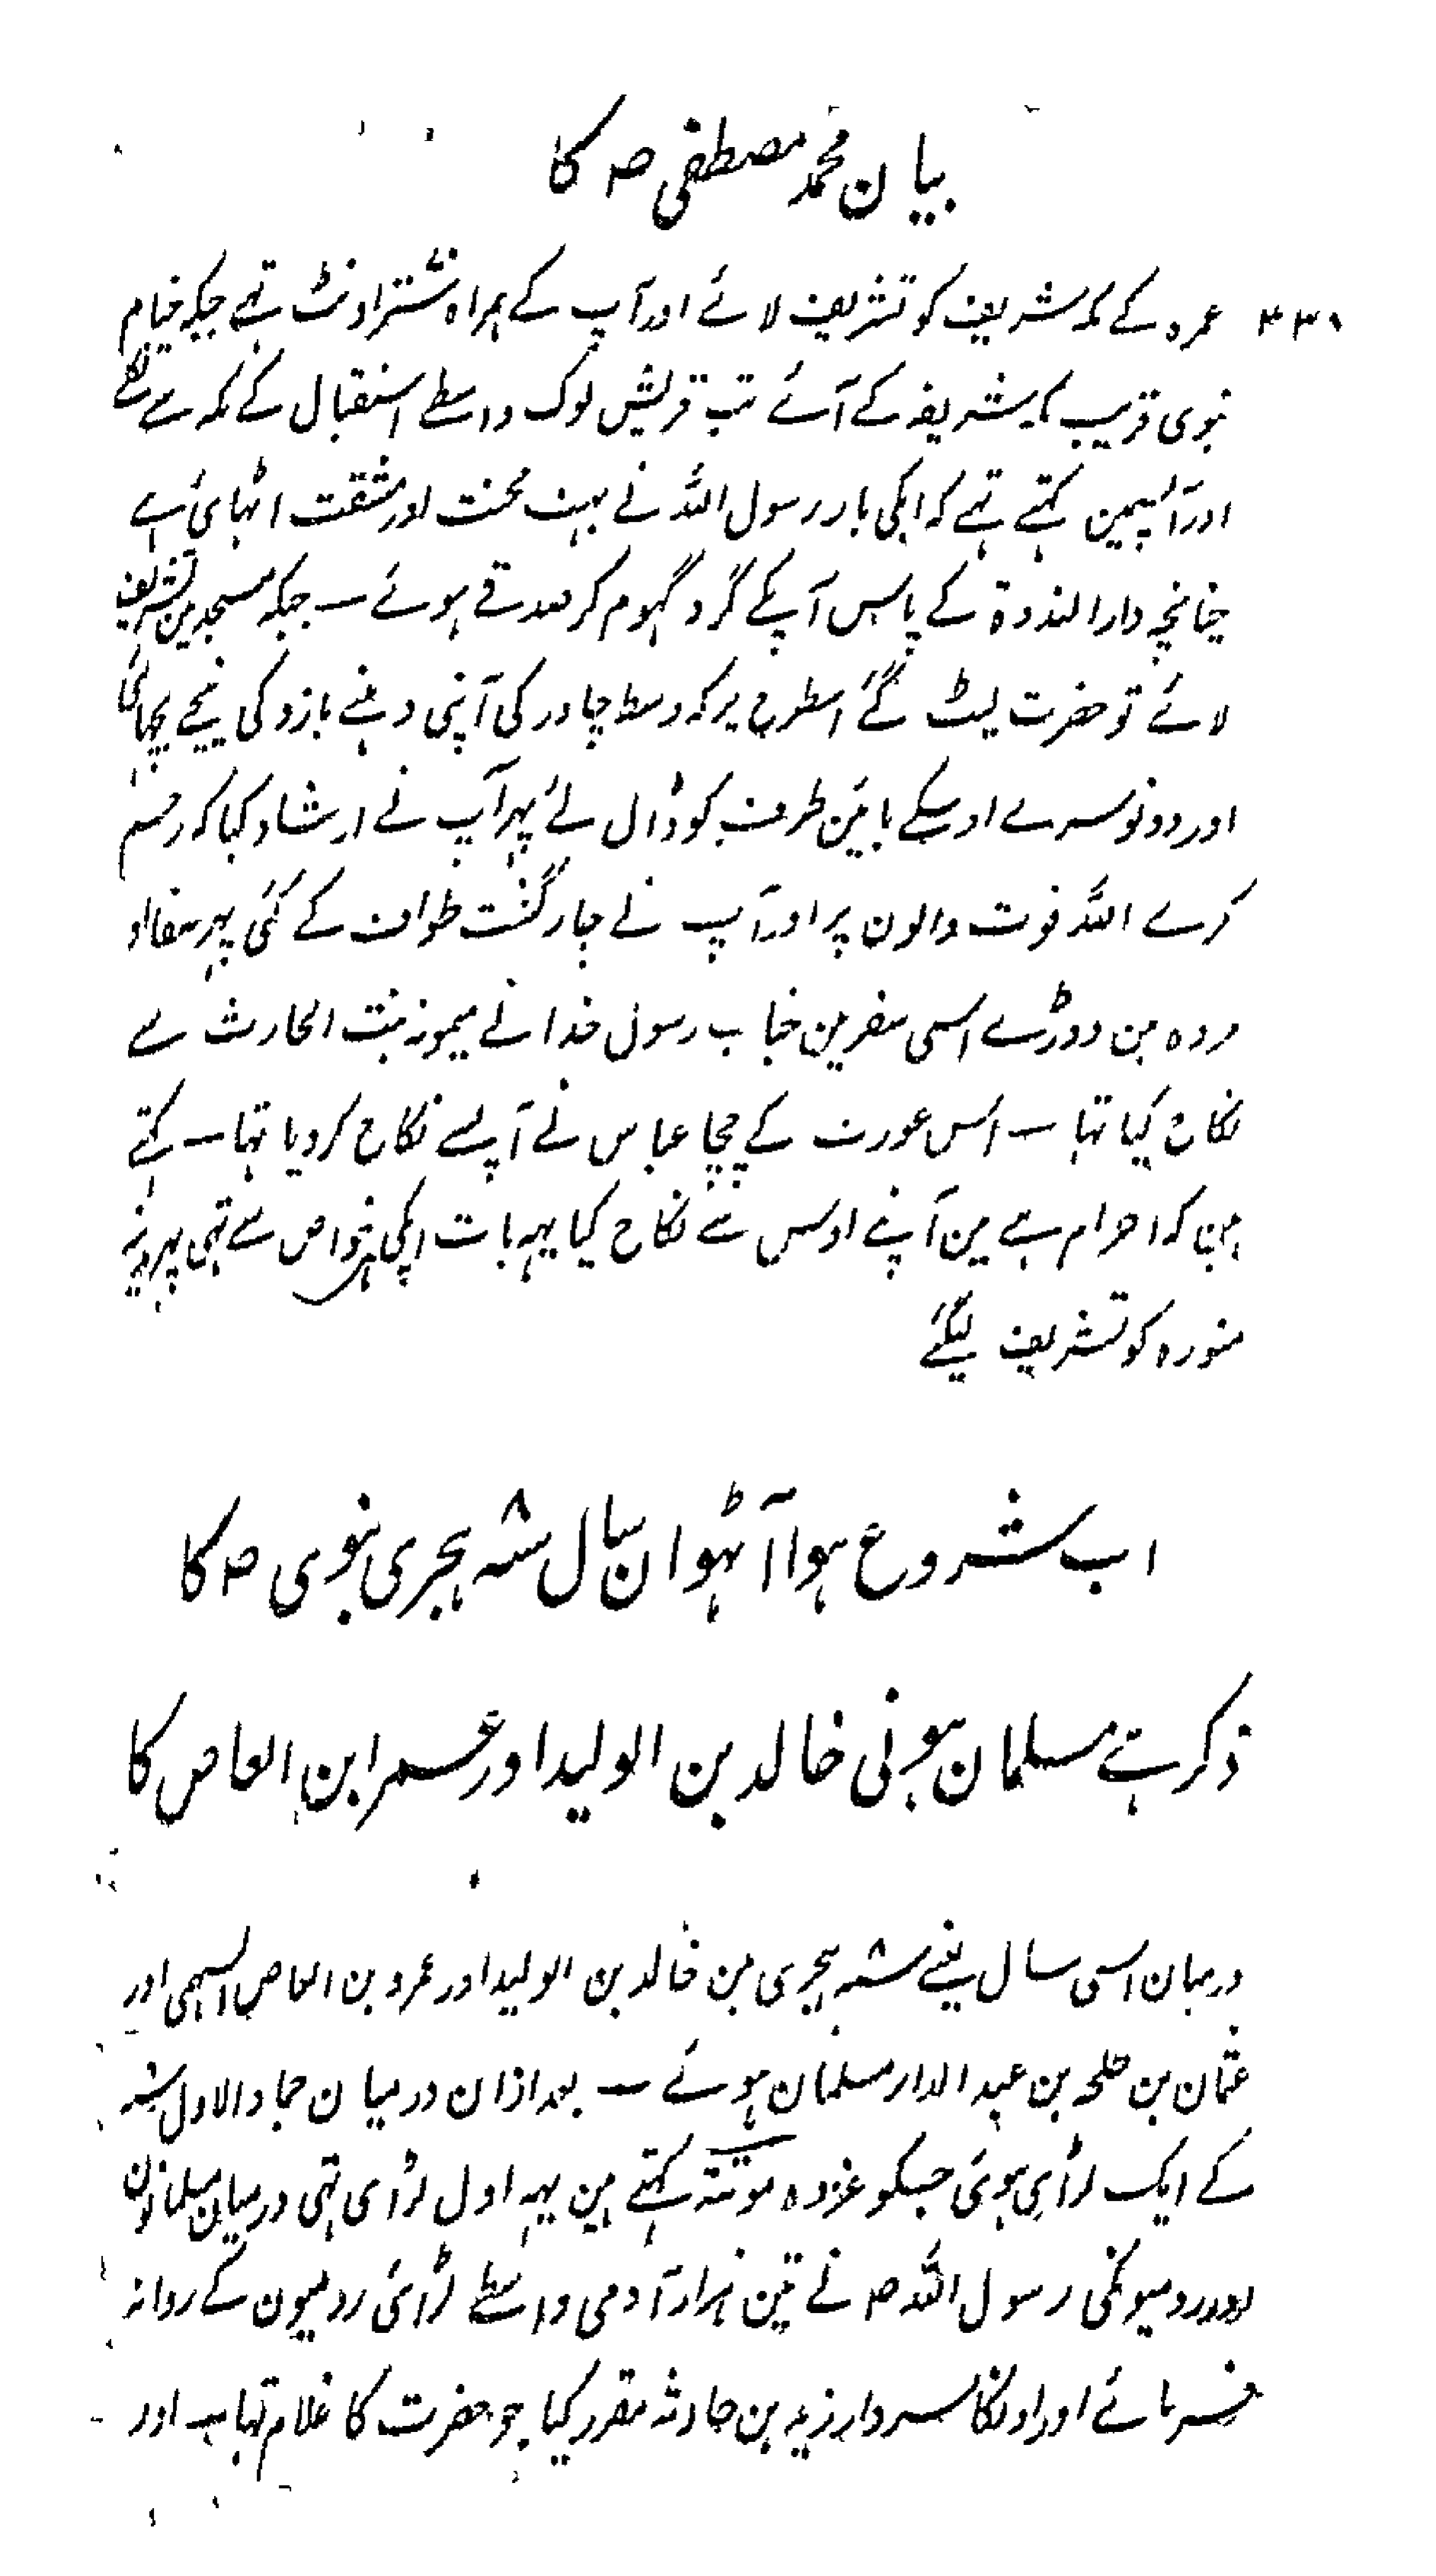 بیان محمد مصطفی ص کا
عمرہ کے مکہ شریف کو تشریف لائے اور آپ کے ہمراہ ستر اونٹ تہے جبکہ خیام
نبوی قریب مکہ شریف کے آئے تب قریش لوگ واسطے استقبال کے مکہ سے نکلے
اور آپسمین کہتے تہے کہ ابکی بار رسول اللہ نے بہت محنت اور مشقت اٹہائی ہے
چنانچہ دار الندوۃ کے پاس آپکے گرد گہوم کر صدقے ہوئے — جبکہ مسجد مین تشریف
لائے تو حضرت لیٹ گئے اسطرح پر کہ وسط چادر کی آپنی دہنے بازو کی نیچے بچہائی
اور دونو سرے اوسکے بائین طرف کو ڈال لئے پہر آپ نے ارشاد کیا کہ رحم
کرے اللہ قوت والون پر اور آپ نے چار گشت طواف کے کئی پہر صفا و
مروہ مین دوڑے اسی سفر مین جناب رسول خدا نے میمونہ بنت الحارث سے
نکاح کیا تہا — اس عورت کے چچا عباس نے آپسے نکاح کر دیا تہا — کہتے
ہین کہ احرام ہے مین آپنے اوس سے نکاح کیا یہہ بات آپکی خواص سے تہی پہر مدینہ
منورہ کو تشریف لیگئے
اب شروع ہوا آٹہوان سال سنہ ۸ ہجری نبوی ص کا
ذکر ہے مسلمان ہونی خالد بن الولید اور عمر ابن العاص کا
درمیان اسی سال یعنے سنہ ۸ ہجری مین خالد بن الولید اور عمرو بن العاص السہمی اور
عثمان بن طلحہ بن عبد الدار مسلمان ہوئے — بعد ازان درمیان جماد الاول سنہ ۸
کے ایک لڑائی ہوئی جسکو غزوہ موتتہ کہتے ہین یہہ اول لڑائی تہی درمیان مسلمانون
اور رومیونکی رسول اللہ ص نے تین ہزار آدمی واسطے لڑائی رومیون کے روانہ
فرمائے اور اونکا سردار زید بن حارثہ مقرر کیا جو حضرت کا غلام تہا اور